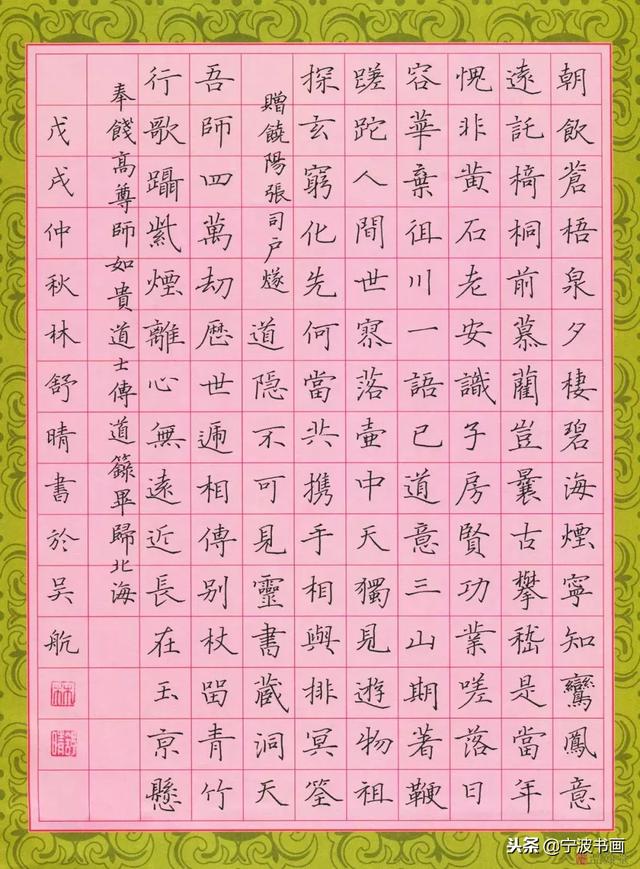 朝飲蒼梧泉夕棲碧海煙寧知鸞鳳意
遠託椅桐前慕藺豈曩古攀嵇是當年
愧非黃石老安識子房賢功業嗟落日
容華棄徂川一語已道意三山期著鞭
蹉跎人間世寥落壷中天獨見遊物祖
探玄窮化先何當共携手相與排冥筌
贈饒陽張司户燧 道隱不可見靈書藏洞天
吾師四萬劫歷世遞相傳别杖留青竹
行歌躡紫煙離心無遠近長在玉京懸
奉餞高尊師如貴道士傳道籙畢歸北海
戊戌仲秋林舒晴書於吴航
头条@宁波书画